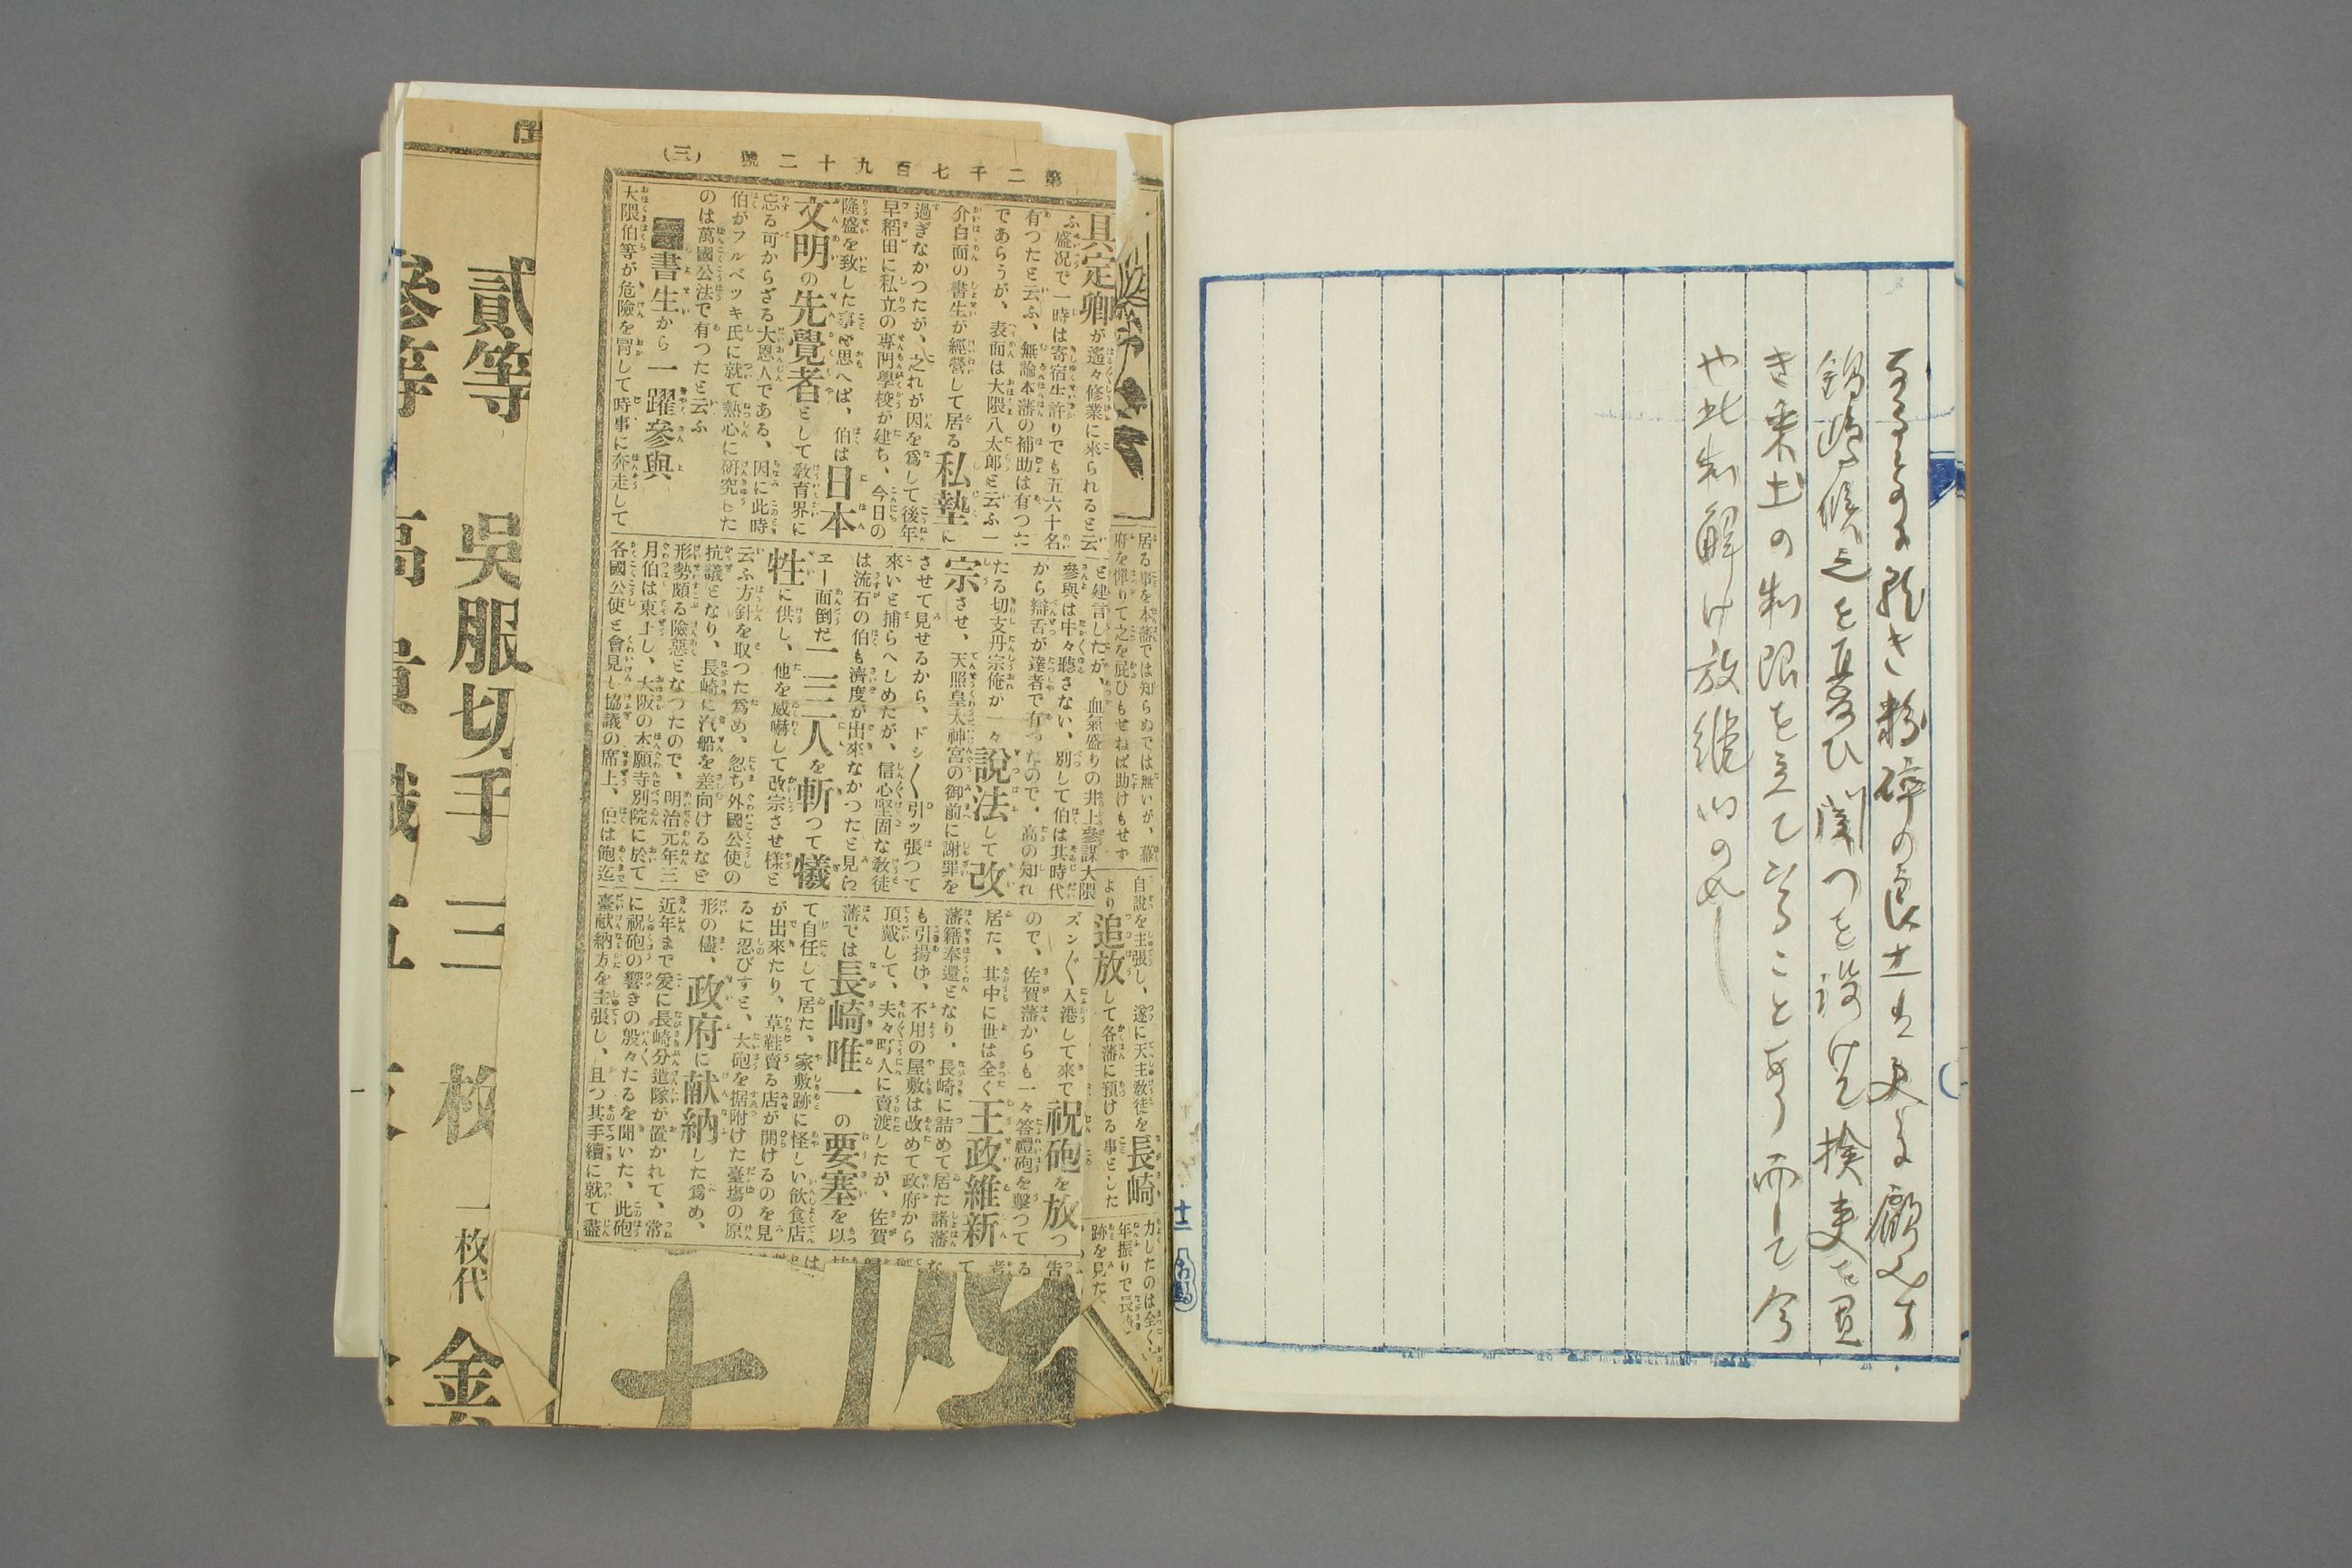 粉碎の良土は更に願みす
鍋嶋侯之を憂ひ関門を設け
の制限を立て ることあり而して今
や此制解け放縦
第二千七百九十二號 (三)
具定卿が遙々修業に来られると云
ふ盛況で一時は寄宿生許りでも五六十名
有つたと云ふ、無論本藩の補助は有つた
であらうが、表面は大隈八太郎と云ふ一
介白面の書生が經營して居る私塾に
過ぎなかつたが、之れが因を爲して後年
早稻田に私立の專門學校が建ち、今日の
隆盛を致した事を思へば、伯は日本
文明の先覺者として敎育界に
忘る可からざる大恩人である、因に此時
伯がフルベツキ氏に就て熱心に硏究した
のは萬國公法で有つたと云ふ
書生から一躍參與
大隈伯等が、危險を冐して時事に奔走して
居る事を本藩では知らぬでは無いが、幕
府を憚りて之を庇ひもせねば助けもせず
と建言したが、血氣盛りの井上參謀大隈
參與は中々聽さない、別して伯は其時代
から辯舌が達者で有つたので、高の知れ
たる切支丹宗俺が一々說法して改
宗させ、天照皇太神宮の御前に謝罪を
させて見せるから、ドシ〱引ツ張つて
來いと捕らへしめたが、信心堅固な敎徒
は流石の伯も濟度が出來なかつたと見ら
ヱー面倒だ一二三人を斬つて犧
牲に供し、他を威嚇して改宗させ樣と
云ふ方針を取つた爲め、忽ち外國公使の
抗議となり、長崎に汽船を差向けるなど
形勢頗る險惡となつたので、明治元年三
月伯は東上し、大阪の本願寺別院に於て
各國公使と會見し協議の席上、伯は飽迄
自說を主張し、遂に天主敎徒を長崎
より追放して各藩に預ける事とした
ズン〲入港して來て祝砲を放つ
ので、佐賀藩からも一々答禮砲を擊つて
居た、其中に世は全く王政維新
藩籍奉還となり、長崎に詰めて居た諸藩
も引揚げ、不用の屋敷は改めて政府から
頂戴して、夫々町人に賣渡したが、佐賀
藩では長崎唯一の要塞を以
て自任して居た、家敷跡に怪しい飮食店
が出来たり、草鞋賣る店が開けるのを見
るに忍びすと、大砲を据附けた臺塲の原
形の儘、政府に献納した爲め、
近年まで爰に長崎分遣隊が置かれて、常
に祝砲の響きの殷々たるを聞いた、此砲
臺献納方を主張し、且つ其手續に就て盡
力したのは全く
年振りで長
跡を見た、
貳等 吳服切手 三 枚 一枚代 金
參等